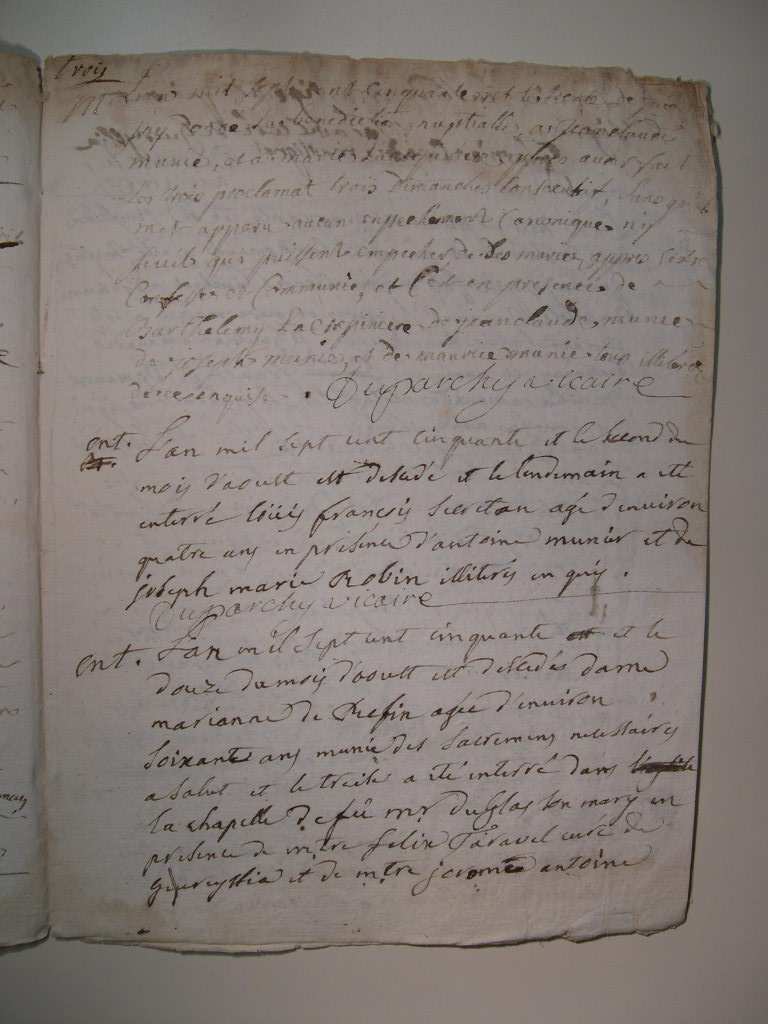 trois
M. L'an mil sept cent cinquante et le trente de
j'ay donné la benediction nuptialle, a jean claude
munié, et a marie apres avoir fait
les trois proclamat trois dimanches consecutif, sans qu'il
m'est apparu aucun empechement canonique ny
civils qui puissent empecher de les marier, apres s'estre
Confessé et Communié, et c'est en presence de
Barthelemy Lacrepiniere de jean claude munié
de joseph munié, et de maurice munié tous illiteré
de ce enquis. Duparchy vicaire
ent. L'an mil sept cent cinquante et le second du
mois d'aoust est decedé et le lendemain a eté
interré loüis françois secretan agé d'environ
quatre ans en présence d'antoine munier et de
joseph marie Robin illiterés enquis.
Duparchy vicaire
ent. L'an mil sept cent cinquante et le
douze du mois d'aoust est decedés dame
marianne de agée d'environ
soixante ans munie des sacremens necessaires
a salut et le treize a eté interré dans
la chapelle de feü mr duglas son mary en
presence de mtre felix Taravel curé de
geureyssia et de mtre jerome antoine